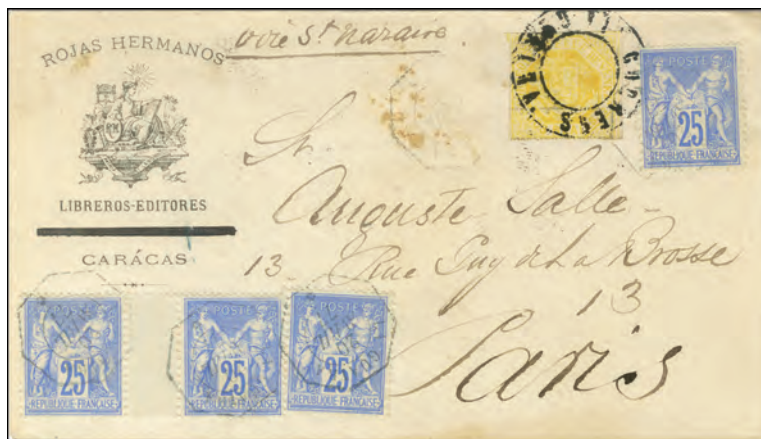 ROJAS HERMANOS
LIBREROS-EDITORES
CARÁCAS
voie St Nazaire
POSTE
25
REPUBLIQUE FRANÇAISE
Sr.
Auguste Salle
13 Rue Guy de la Brosse
13
Paris
POSTE
25
REPUBLIQUE FRANÇAISE
POSTE
25
REPUBLIQUE FRANÇAISE
POSTE
25
REPUBLIQUE FRANÇAISE